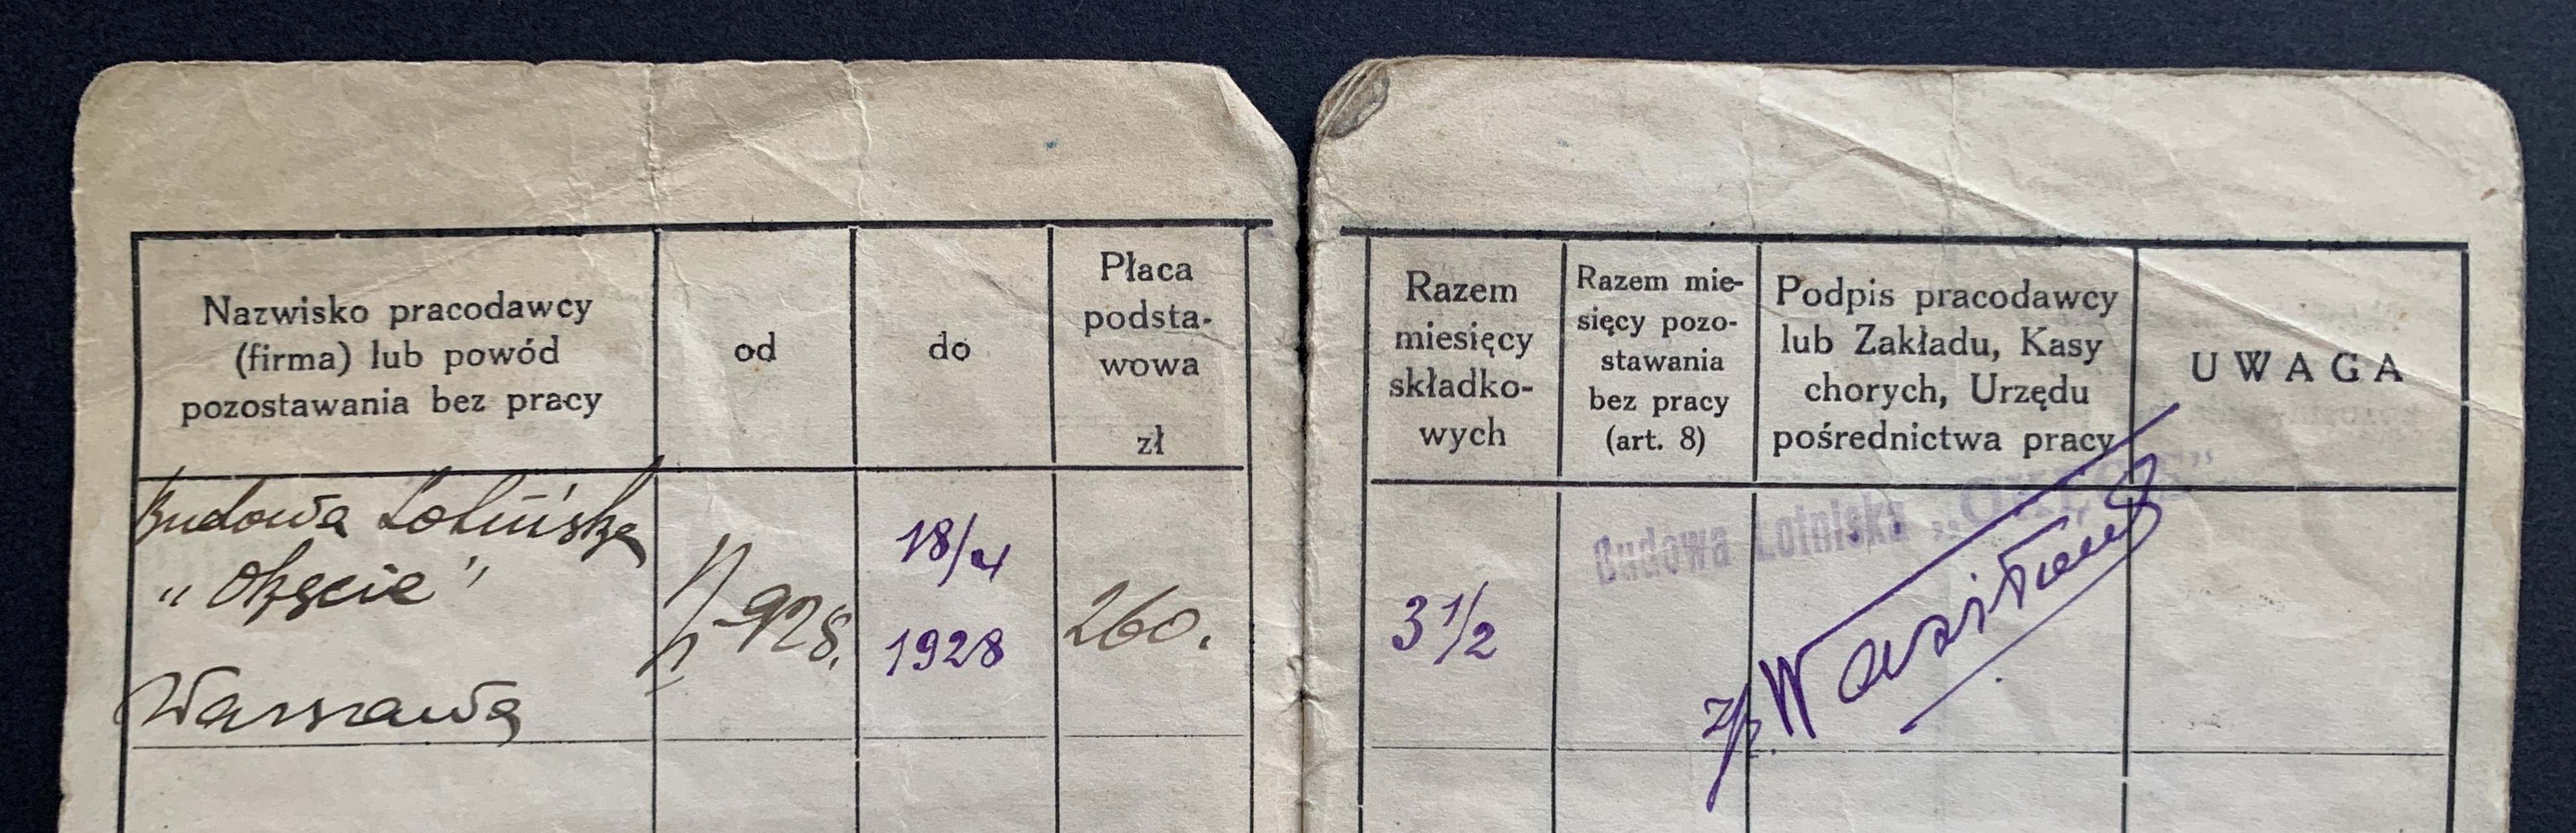 Nazwisko pracodawcy
(firma) lub powód
pozostawania bez pracy
od
do
Płaca
podsta-
wowa
zł
Razem
miesięcy
składko-
wych
Razem mie-
sięcy pozo-
stawania
bez pracy
(art. 8)
Podpis pracodawcy
lub Zakładu, Kasy
chorych, Urzędu
pośrednictwa pracy
UWAGA
Budowa Lotniska
„Okęcie"
Warszawa
928.
18/4
1928
260.
3 1/2
Budowa Lotniska „OKĘCIE"